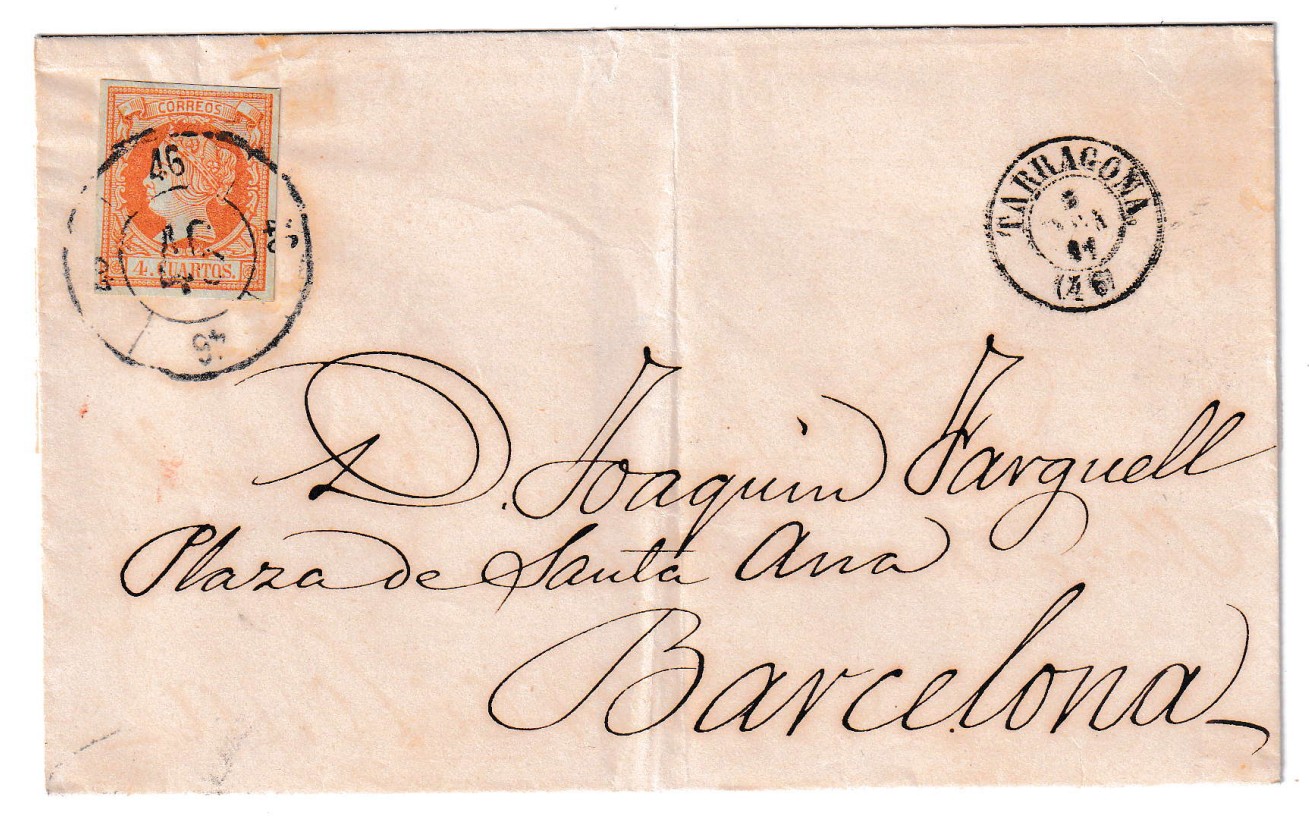 CORREOS
46
46
46
46
4. CUARTOS.
TARRAGONA.
(46)
D. Joaquin Farguell
Plaza de Santa Ana
Barcelona